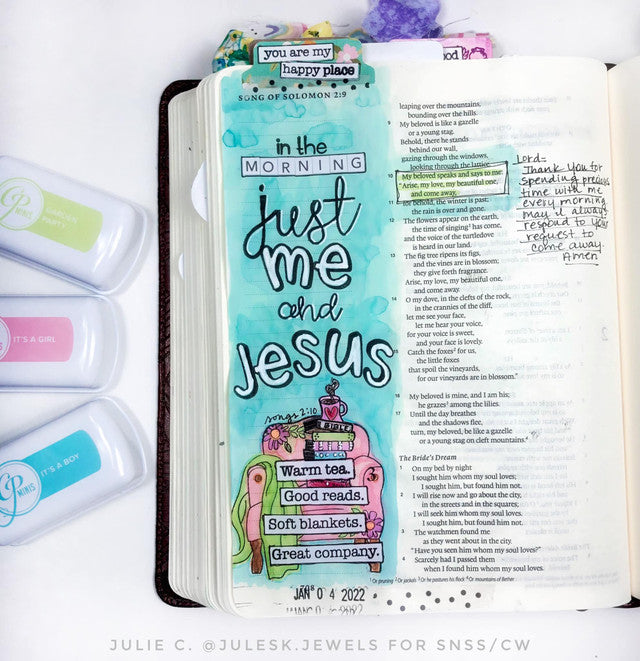 you are my
happy place
SONG OF SOLOMON 2:9
in the
MORNING
just
me
and
Jesus
songs 2:10
BIBLE
Warm tea.
Good reads.
Soft blankets.
Great company.
JAN 0 4 2022
leaping over the mountains,
bounding over the hills.
9 My beloved is like a gazelle
or a young stag.
Behold, there he stands
behind our wall,
gazing through the windows,
looking through the lattice.
10 My beloved speaks and says to me:
"Arise, my love, my beautiful one,
and come away,
11 for behold, the winter is past;
the rain is over and gone.
12 The flowers appear on the earth,
the time of singing has come,
and the voice of the turtledove
is heard in our land.
13 The fig tree ripens its figs,
and the vines are in blossom;
they give forth fragrance.
Arise, my love, my beautiful one,
and come away.
14 O my dove, in the clefts of the rock,
in the crannies of the cliff,
let me see your face,
let me hear your voice,
for your voice is sweet,
and your face is lovely.
15 Catch the foxes for us,
the little foxes
that spoil the vineyards,
for our vineyards are in blossom."
16 My beloved is mine, and I am his;
he grazes among the lilies.
17 Until the day breathes
and the shadows flee,
turn, my beloved, be like a gazelle
or a young stag on cleft mountains.
The Bride's Dream
On my bed by night
I sought him whom my soul loves;
I sought him, but found him not.
2 I will rise now and go about the city,
in the streets and in the squares;
I will seek him whom my soul loves.
I sought him, but found him not.
3 The watchmen found me
as they went about in the city.
"Have you seen him whom my soul loves?"
4 Scarcely had I passed them
when I found him whom my soul loves.
Or pruning Or jackals Or he pastures his flock Or mountains of Bether
Lord-
Thank you for
spending precious
time with me
every morning
may I always
respond to your
request to
come away.
Amen
CP
MINIS
GARDEN
PARTY
MINIS
IT'S A GIRL
CP
MINIS
IT'S A BOY
JULIE C. @JULESK.JEWELS FOR SNSS/CW